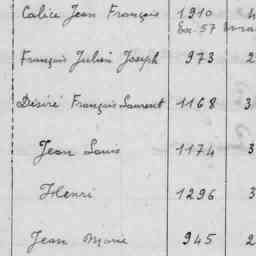 Calice Jean François 1910 4
François Julien Joseph 973 2
Désiré François Laurent 1168 3
Jean Louis 1174 3
Henri 1296 3
Jean Marie 945 2